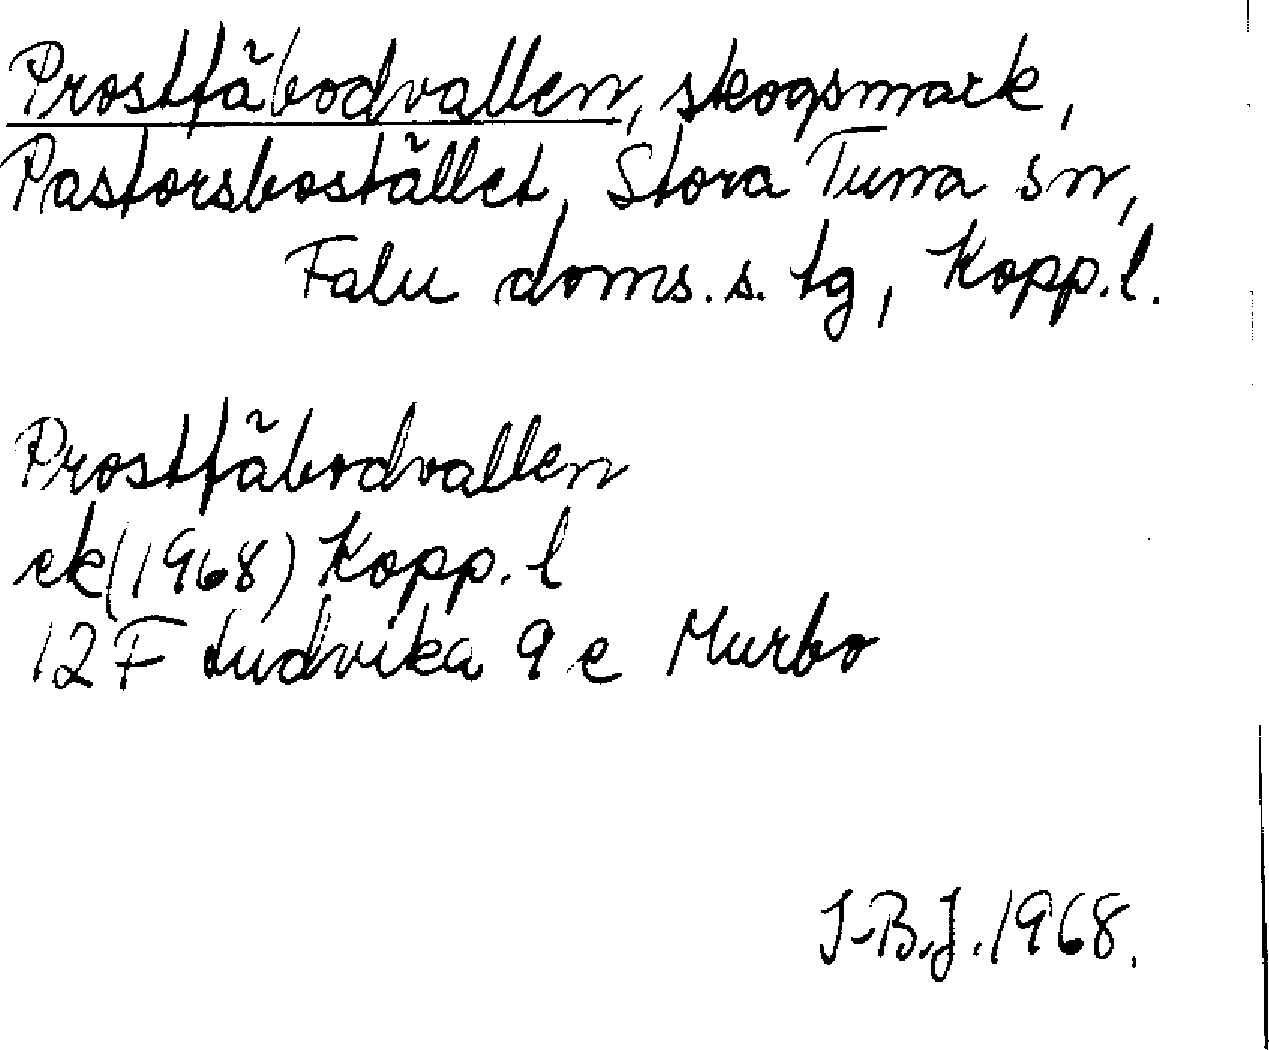 Prostfäbodvallen, skogsmark,
Pastorsbostället, Stora Tuna sn,
Falu doms.s. tg, Kopp.l.
Prostfäbodvallen
ek(1968) Kopp. l
12F Ludvika 9 e Murbo
I-B.J. 1968.